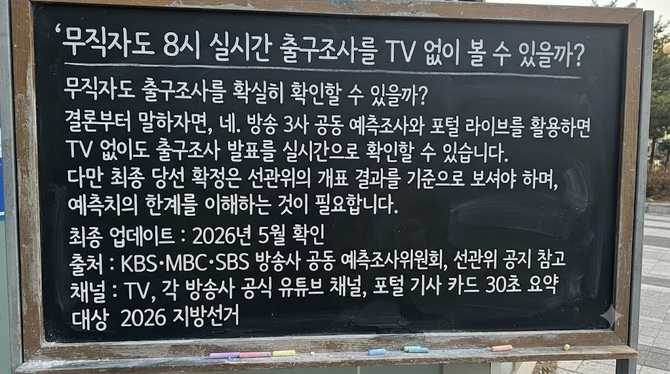 ‘무직자도 8시 실시간 출구조사를 TV 없이 볼 수 있을까?
무직자도 출구조사를 확실히 확인할 수 있을까?
결론부터 말하자면, 네. 방송 3사 공동 예측조사와 포털 라이브를 활용하면
TV 없이도 출구조사 발표를 실시간으로 확인할 수 있습니다.
다만 최종 당선 확정은 선관위의 개표 결과를 기준으로 보셔야 하며,
예측치의 한계를 이해하는 것이 필요합니다.
최종 업데이트 : 2026년 5월 확인
출처 : KBS·MBC·SBS 방송사 공동 예측조사위원회, 선관위 공지 참고
채널 : TV, 각 방송사 공식 유튜브 채널, 포털 기사 카드 30초 요약
대상 2026 지방선거